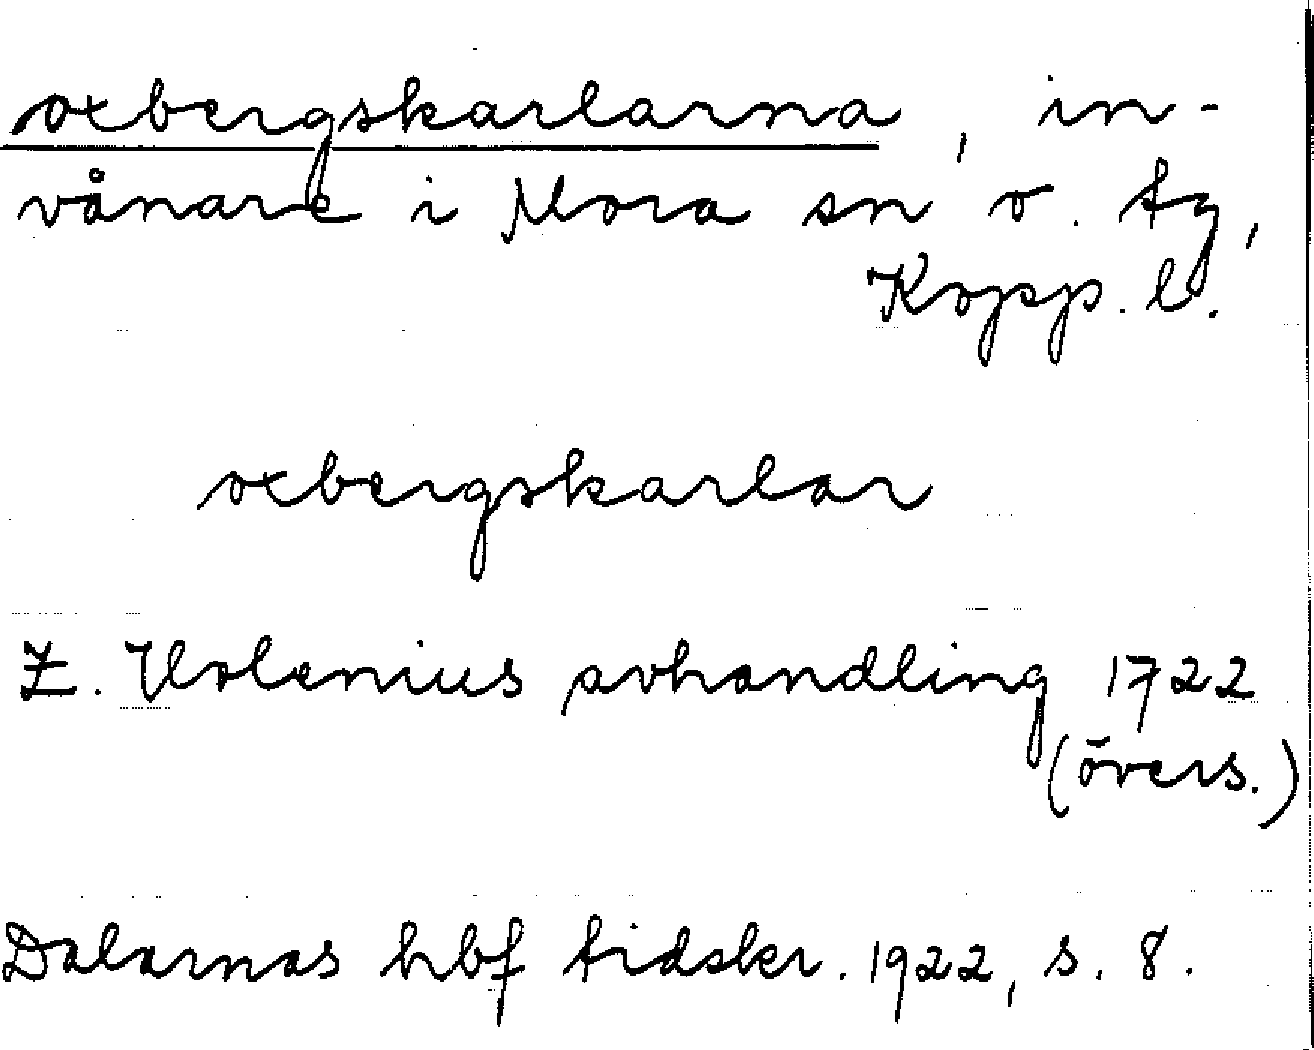 oxbergskarlarna, in-
vånare i Mora sn o. tg,
Kopp. l.
oxbergskarlar
Z. Holenius avhandling 1722
(övers.)
Dalarnas hbf tidskr. 1922, s. 8.